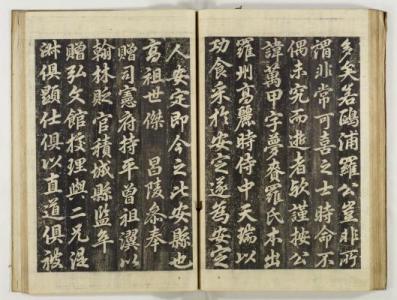 多矣若鷗浦羅公豈非所
謂非常可喜之士時命不
偶未究而逝者歟謹按公
諱萬甲字夢賚羅氏本出
羅州高麗時侍中天瑞以
功食采於安定遂爲安定
人安定即今之比安縣也
高祖世傑 昌陵參奉
贈司憲府持平曾祖瀷以
翰林貶官積城縣監卒
贈弘文館校理與二兄湜
淑俱顯仕俱以直道俱被